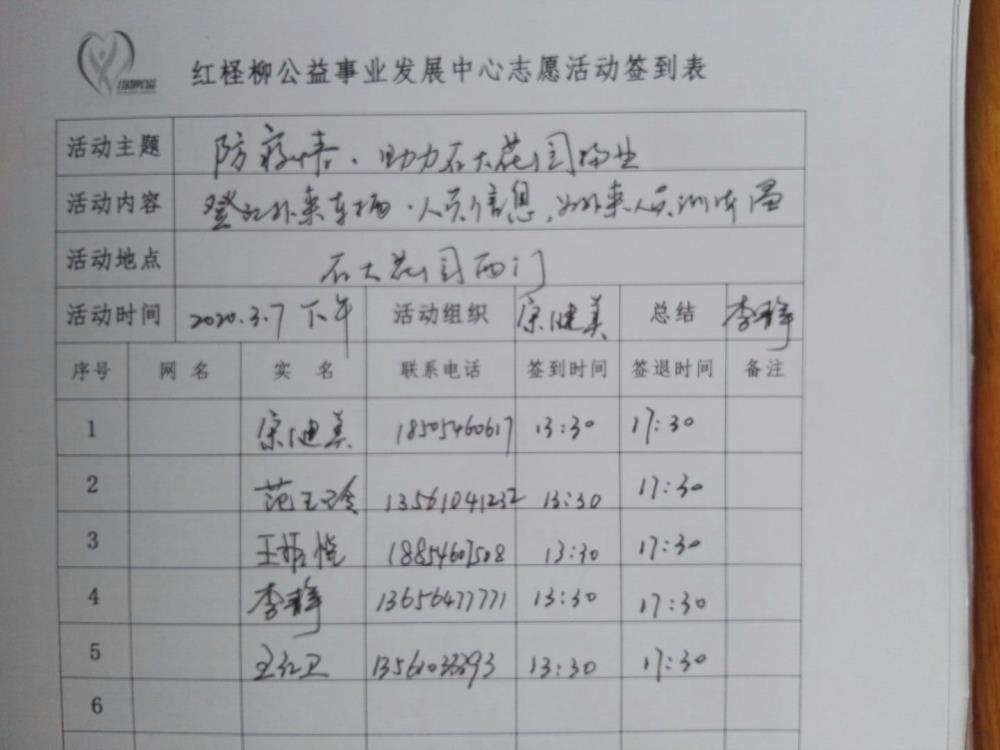 红柽柳公益事业发展中心志愿活动签到表
活动主题 防疫情、助力石大花园物业
活动内容 登记外来车辆、人员信息、为外来人员测体温
活动地点 石大花园西门
活动时间 2020.3.7 下午 活动组织 宋健美 总结 李静
序号 网名 实名 联系电话 签到时间 签退时间 备注
1 宋健美 18505460617 13:30 17:30
2 范玉玲 13561041232 13:30 17:30
3 王 悦 18854607508 13:30 17:30
4 李静 13656477771 13:30 17:30
5 王红卫 13561033293 13:30 17:30
6